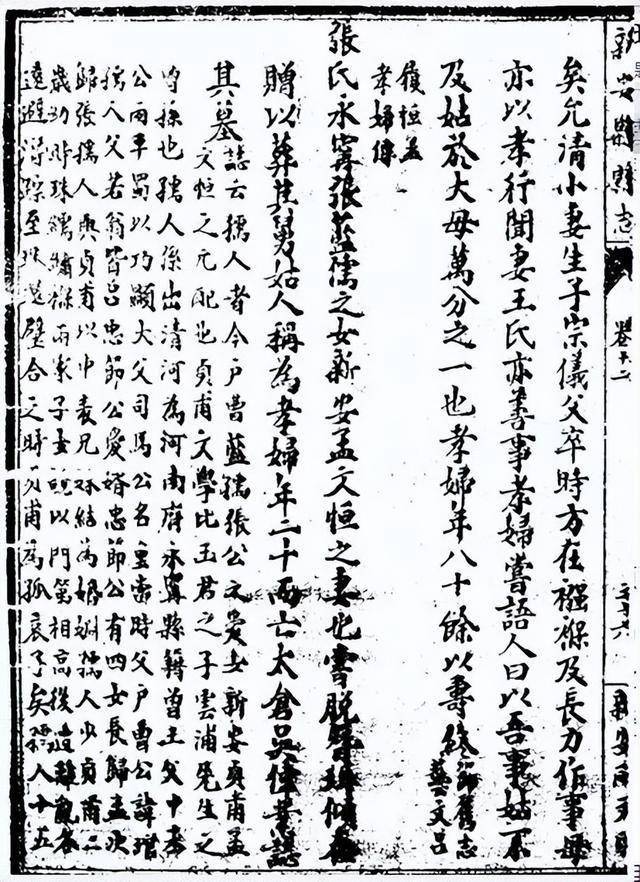 新安縣志
卷十二
矣允清小妻生子宗儀父卒時方在襁褓及長力作事母
亦以孝行聞妻王氏亦善事孝婦嘗語人曰以吾事姑不
及姑於大母萬分之一也孝婦年八十餘以壽終節舊志藝文呂
孝婦傳
張氏永寧張藍孺之女新安孟文恒之妻也嘗脫簪珥傾
贈以葬其舅姑人稱為孝婦年二十而亡太倉吳偉業誌
其墓誌云孺人者今戶曹藍孺張公之愛女新安貞甫孟
文恒之元配也貞甫文學比玉君之子雲浦先生之
曾孫也孺人系出清河為河南府永寧縣籍曾王父十孝
公兩平蜀以巧顯大父司馬公名重當時父戶曹公諱
孺人父若翁皆呂忠節公愛婿忠節公有四女長歸孟次
歸張孺人與貞甫以中表兄妹結為婚姻孺人少貞甫二
歲幼時珠襦繡褓兩家子女說以門第相高後遭難亂各
遠避至珠還璧合之時貞甫為孤哀子矣孺人十五